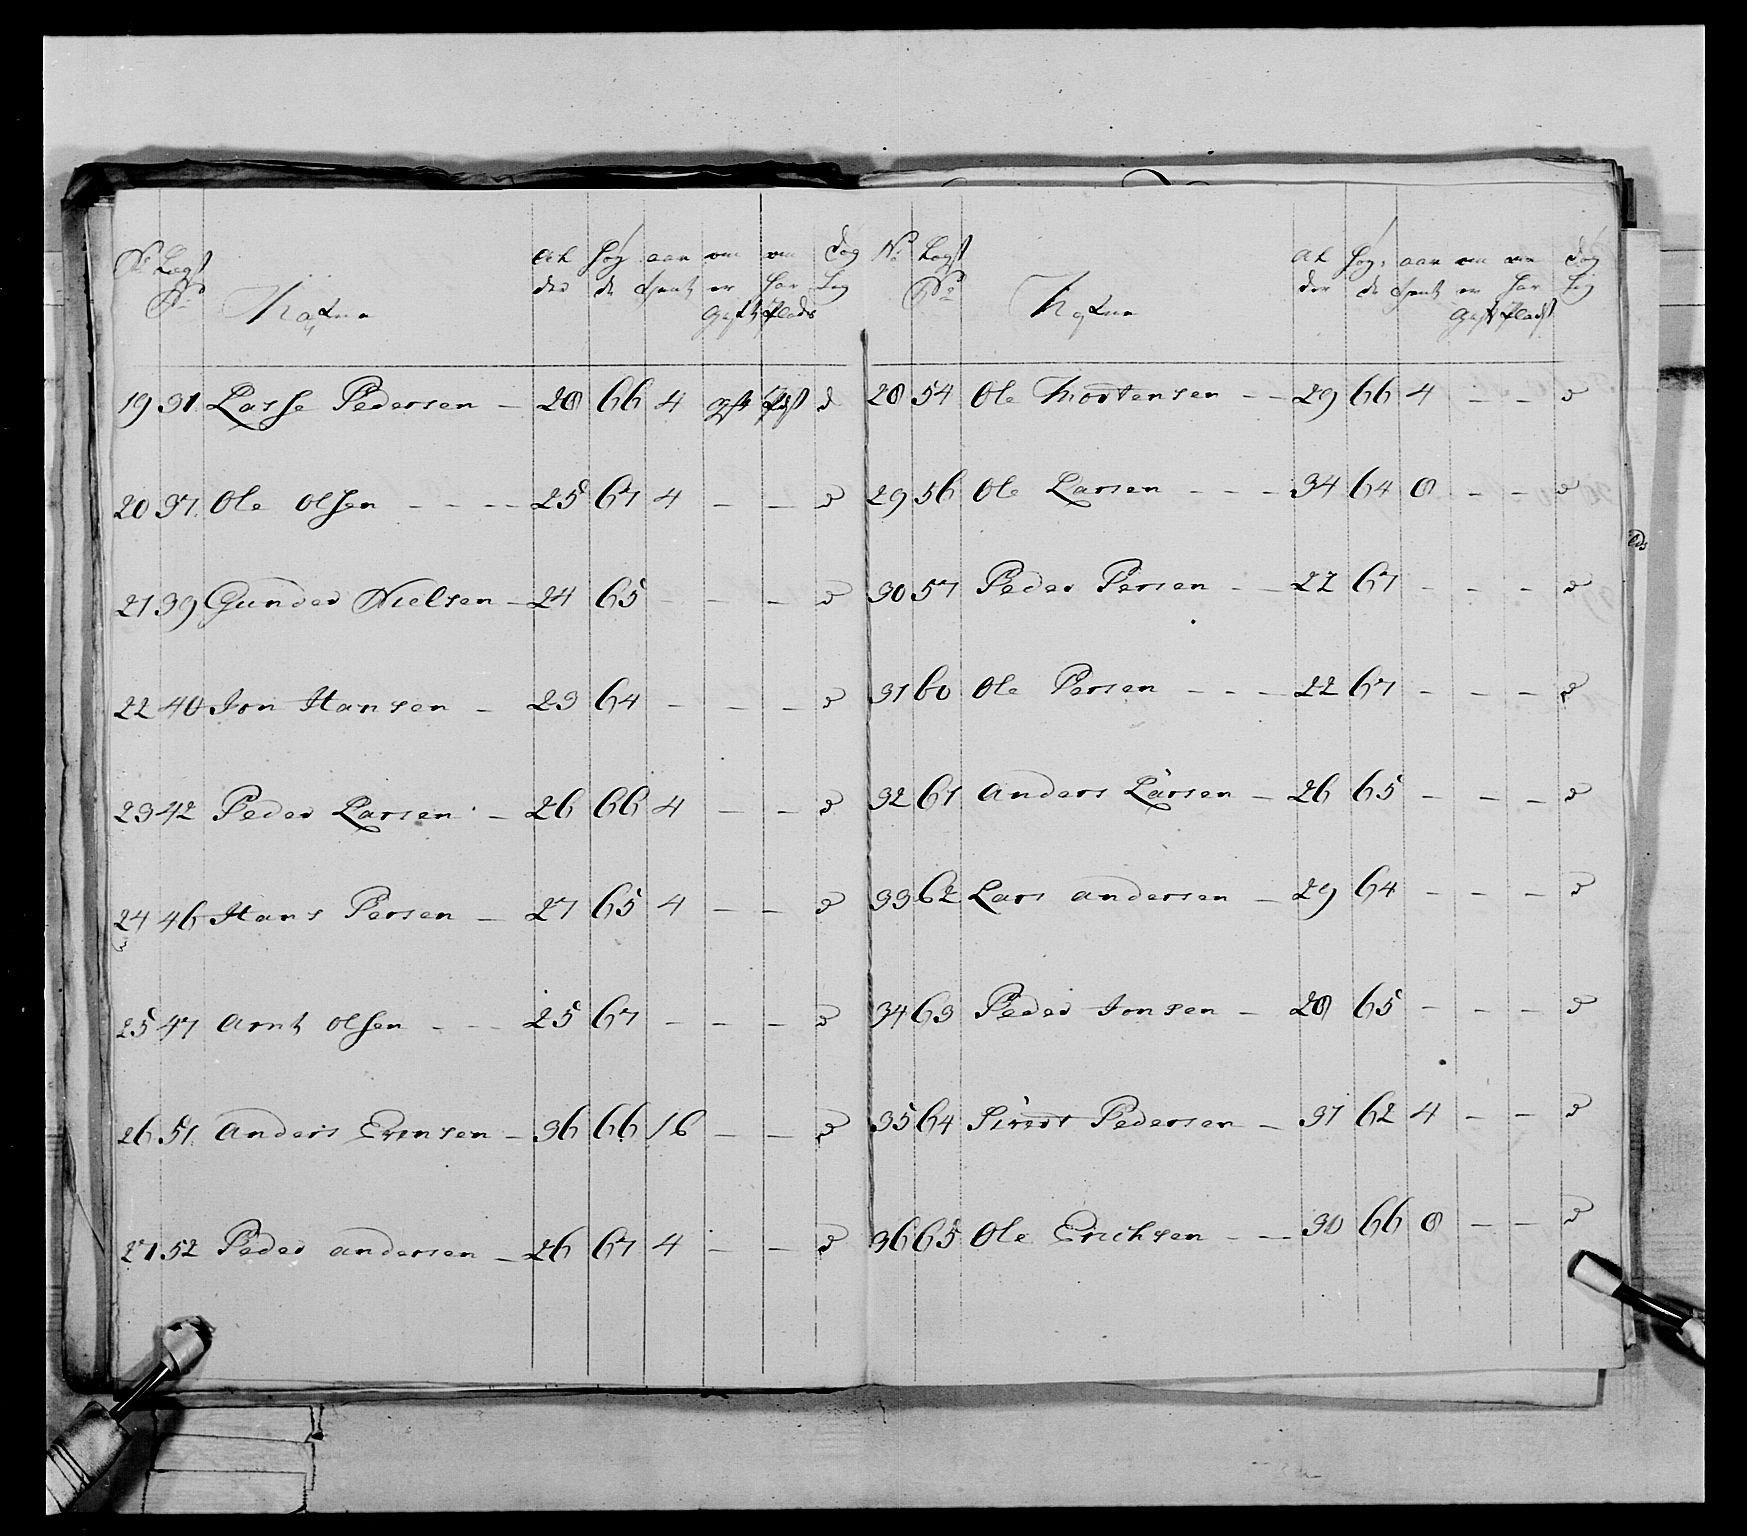 No Lægd No Nafne al der høy de aar thent om er gift om har plads dog lig
19 31 Lasse Pedersen – 28 66 4 gift plds d
20 37 Ole Olsen - - - - 25 67 4 – – d
21 39 Gunder Nielsen – 24 65 – – – d
22 40 Jon Hansen – 23 64 – – – d
23 42 Peder Larsen – 26 66 4 – – d
24 46 Hans Persen – 27 65 4 – – d
25 47 Arnt Olsen - - - 25 67 – – – d
26 51 Anders Evensen – 36 66 16 – – d
27 52 Peder Andersen – 26 67 4 – – d
No Lægd No Nafne al der høy de aar thent om er gift om har plads dog lig
28 54 Ole Mortensen – – 29 66 4 – – d
29 56 Ole Larsen – – – 34 64 8 – – d
30 57 Peder Persen – – 22 67 – – – d
31 60 Ole Persen – – – 22 67 – – – d
32 61 Anders Larsen – 26 65 – – – d
33 62 Lars Andersen – 29 64 – – – d
34 63 Peder Jonsen – 28 65 – – – d
35 64 Pedersen – 31 62 4 – – d
36 65 Ole Erichsen – – 30 66 8 – – d